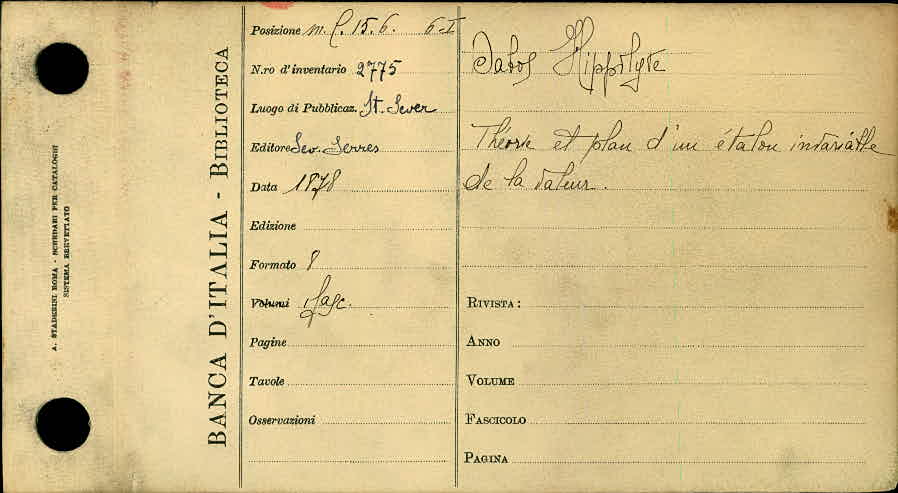 A. STADERINI ROMA - SCHEDARI PER CATALOGHI
SISTEMA BREVETTATO
BANCA D'ITALIA - BIBLIOTECA
Posizione m. f. 15. 6. 6-I
N.ro d'inventario 2775
Luogo di Pubblicaz. St. Sever
Editore Sev. Serres
Data 1878
Edizione
Formato 8
Volumi 1 fasc.
Pagine
Tavole
Osservazioni
Dabos Hippolyte
Théorie et plan d'un étalon invariable
de la valeur.
RIVISTA:
ANNO
VOLUME
FASCICOLO
PAGINA